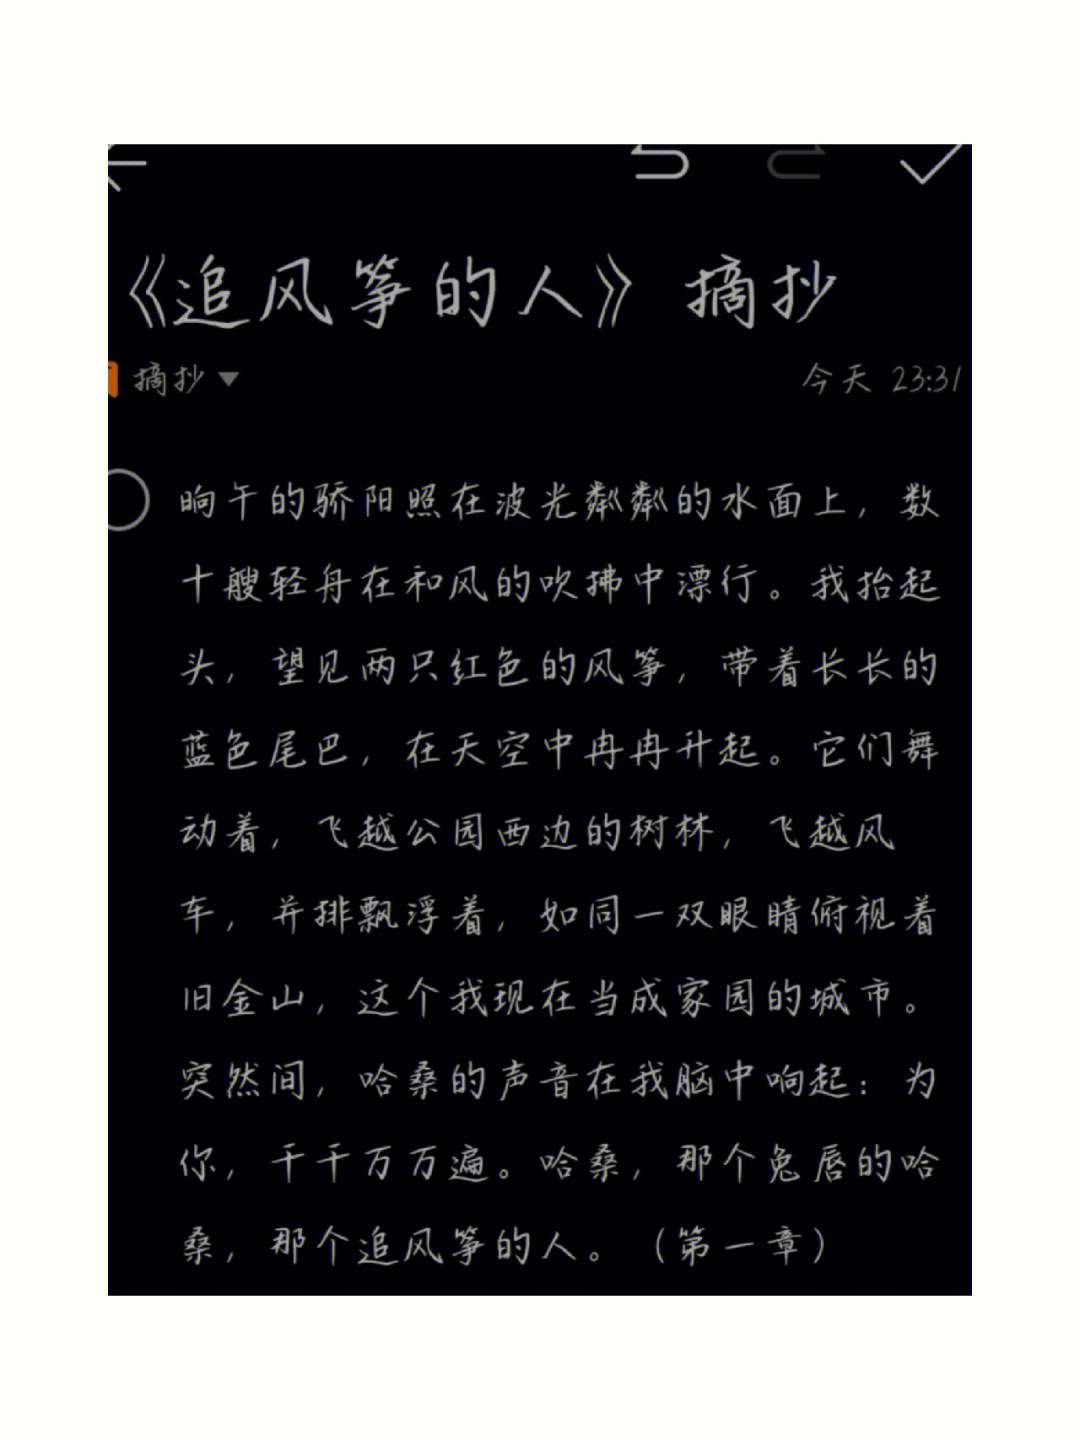 《追风筝的人》摘抄
摘抄 今天 23:31
晌午的骄阳照在波光粼粼的水面上，数
十艘轻舟在和风的吹拂中漂行。我抬起
头，望见两只红色的风筝，带着长长的
蓝色尾巴，在天空中冉冉升起。它们舞
动着，飞越公园西边的树林，飞越风
车，并排飘浮着，如同一双眼睛俯视着
旧金山，这个我现在当成家园的城市。
突然间，哈桑的声音在我脑中响起：为
你，千千万万遍。哈桑，那个兔唇的哈
桑，那个追风筝的人。（第一章）